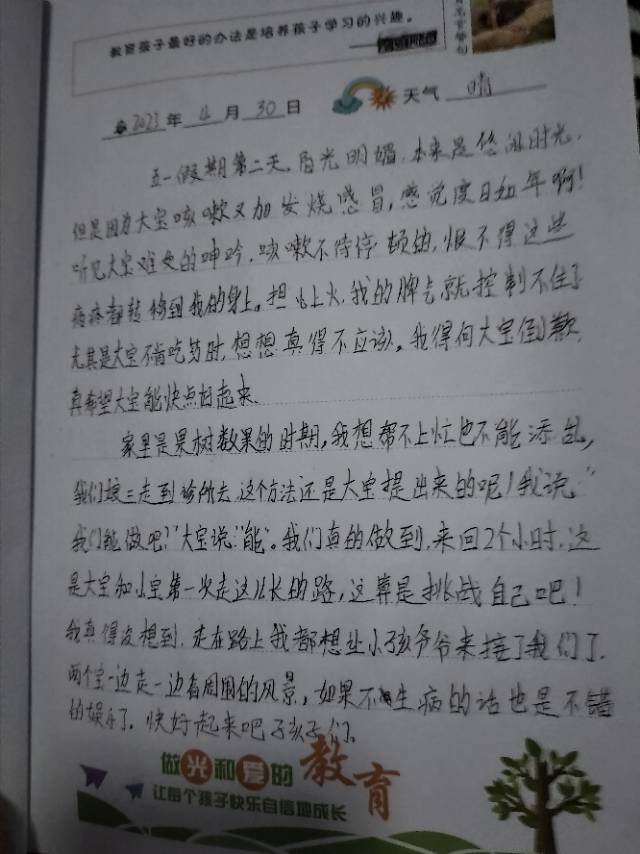 教育孩子最好的办法是培养孩子学习的兴趣。
2023年4月30日 天气 晴
五一假期第二天,阳光明媚,本来是悠闲时光,
但是因为大宝咳嗽又加发烧感冒,感觉度日如年啊!
听见大宝难受的呻吟,咳嗽不停停顿的,恨不得这些
疼疼都转移到我的身上。担心上火,我的脾气就控制不住了
尤其是大宝不肯吃药时,想想真得不应该。我得向大宝道歉,
真希望大宝能快点好起来、
家里是果树数果的时期,我想帮不上忙也不能添乱,
我们娘三走到诊所去,这个方法还是大宝提出来的呢!我说:“
我们能做吧?”大宝说:“能”。我们真的做到,来回2个小时,这
是大宝和小宝第一次走这么长的路,这算是挑战自己吧!
我真得没想到,走在路上我都想让小孩爷爷来接了我们了.
两个宝一边走一边看周围的风景,如果不生病的话也是不错
的娱乐了,快好起来吧孩子们。
做光和爱的教育
让每个孩子快乐自信地成长